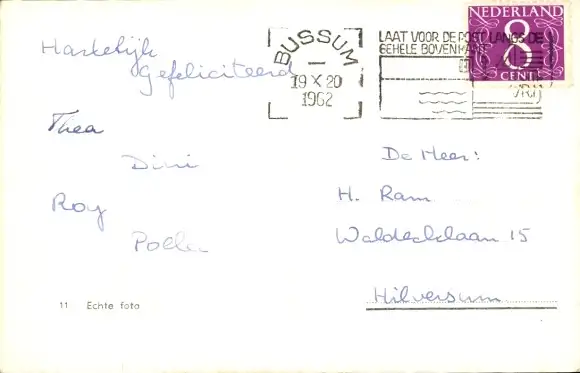 Hartelijk
Gefeliciteerd
Thea
Dini
Roy
11 Echte foto
BUSSUM
19 X 20
1962
LAAT VOOR DE POST LANGS DE
GEHELE BOVENKANT
VRIJ
NEDERLAND
8
CENT
De Heer:
H. Ram
Waldecklaan 15
Hilversum